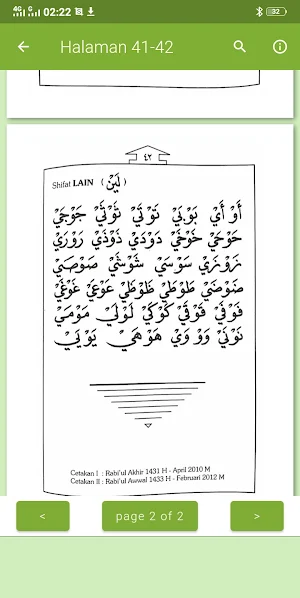 02:22
32
Halaman 41-42
٤٢
Shifat LAIN ( لَيِّنْ )
أَوْ أَيْ بَوْبَيْ تَوْتَيْ ثَوْثَيْ جَوْجَيْ
حَوْحَيْ خَوْخَيْ دَوْدَيْ ذَوْذَيْ رَوْرَيْ
زَوْزَيْ سَوْسَيْ شَوْشَيْ صَوْصَيْ
ضَوْضَيْ طَوْطَيْ ظَوْظَيْ عَوْعَيْ غَوْغَيْ
فَوْفَيْ قَوْقَيْ كَوْكَيْ لَوْلَيْ مَوْمَيْ
نَوْنَيْ وَوْ وَيْ هَوْهَيْ يَوْيَيْ
Cetakan I : Rabi'ul Akhir 1431 H - April 2010 M
Cetakan II : Rabi'ul Awwal 1433 H - Februari 2012 M
< page 2 of 2 >